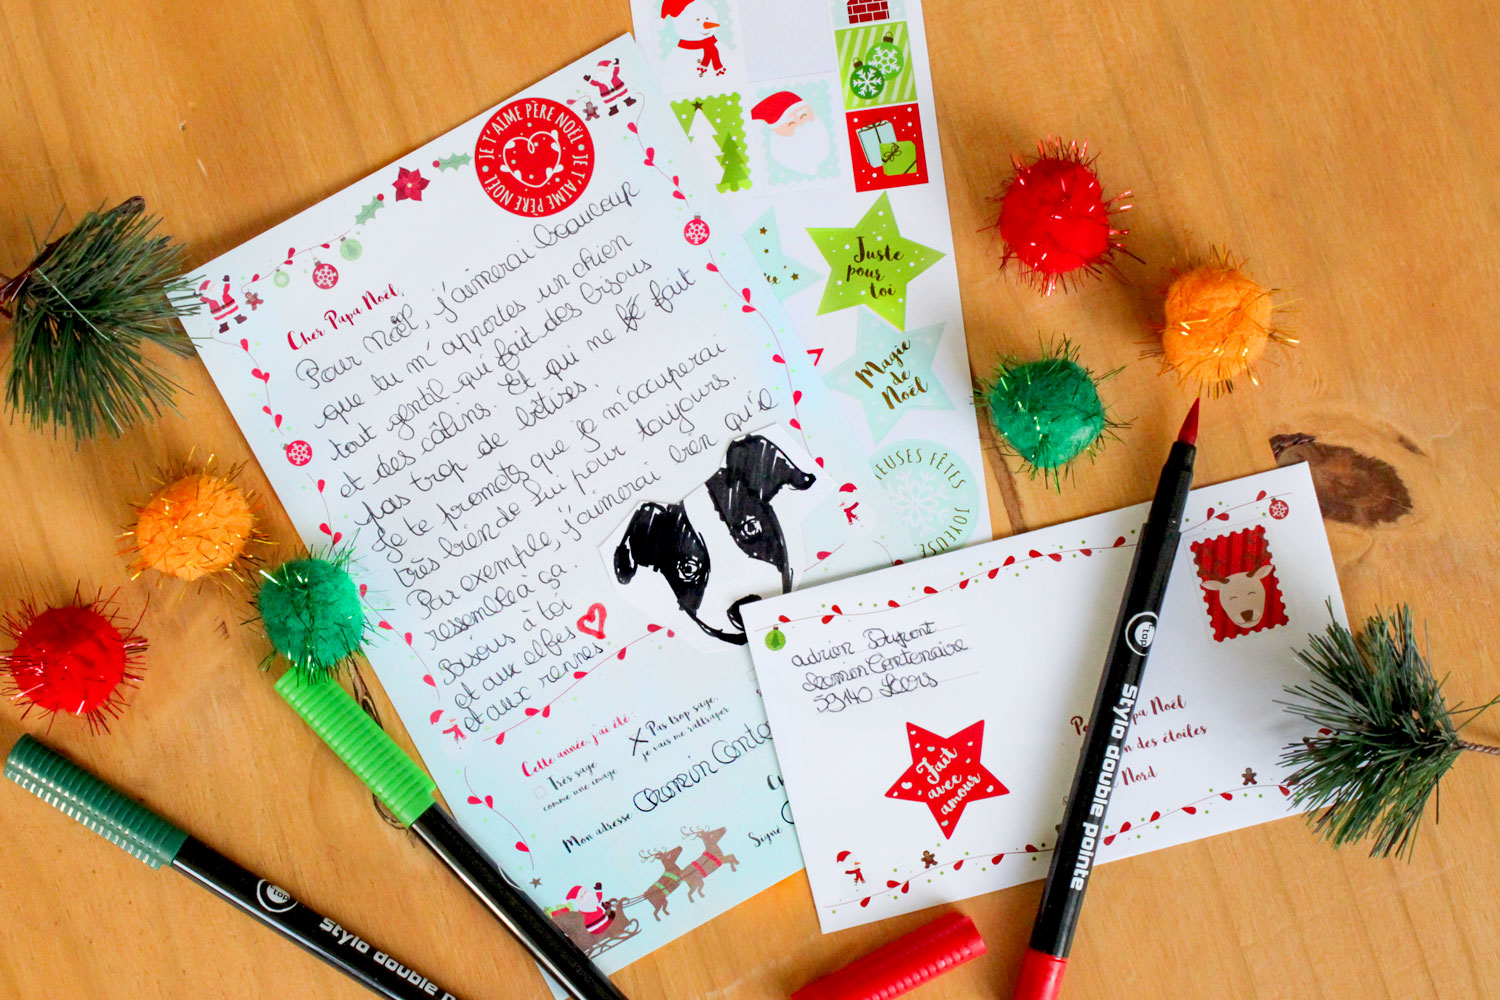 JE T'AIME PÈRE NOËL • JE T'AIME PÈRE NOËL •
Cher Papa Noël,
Pour Noël, j'aimerai beaucoup
que tu m'apportes un chien
tout gentil qui fait des bisous
et des câlins. Et qui ne fait
pas trop de bêtises.
Je te promets que je m'accuperai
très bien de lui pour toujours.
Par exemple, j'aimerai bien qu'il
ressemble à ça.
Bisous à toi
et aux elfes
et aux rennes.
Cette année, j'ai été :
Très sage
comme une image
X Pas trop sage,
je vais me rattraper
Mon adresse
Signé
Juste
pour
toi
Magie
de
Noël
EUSES FÊTES
JOYEUSE
adrien Dupont
59140
Fait
avec
amour
pa Noël
n des étoiles
Nord
top
stylo double pointe
top
stylo double po